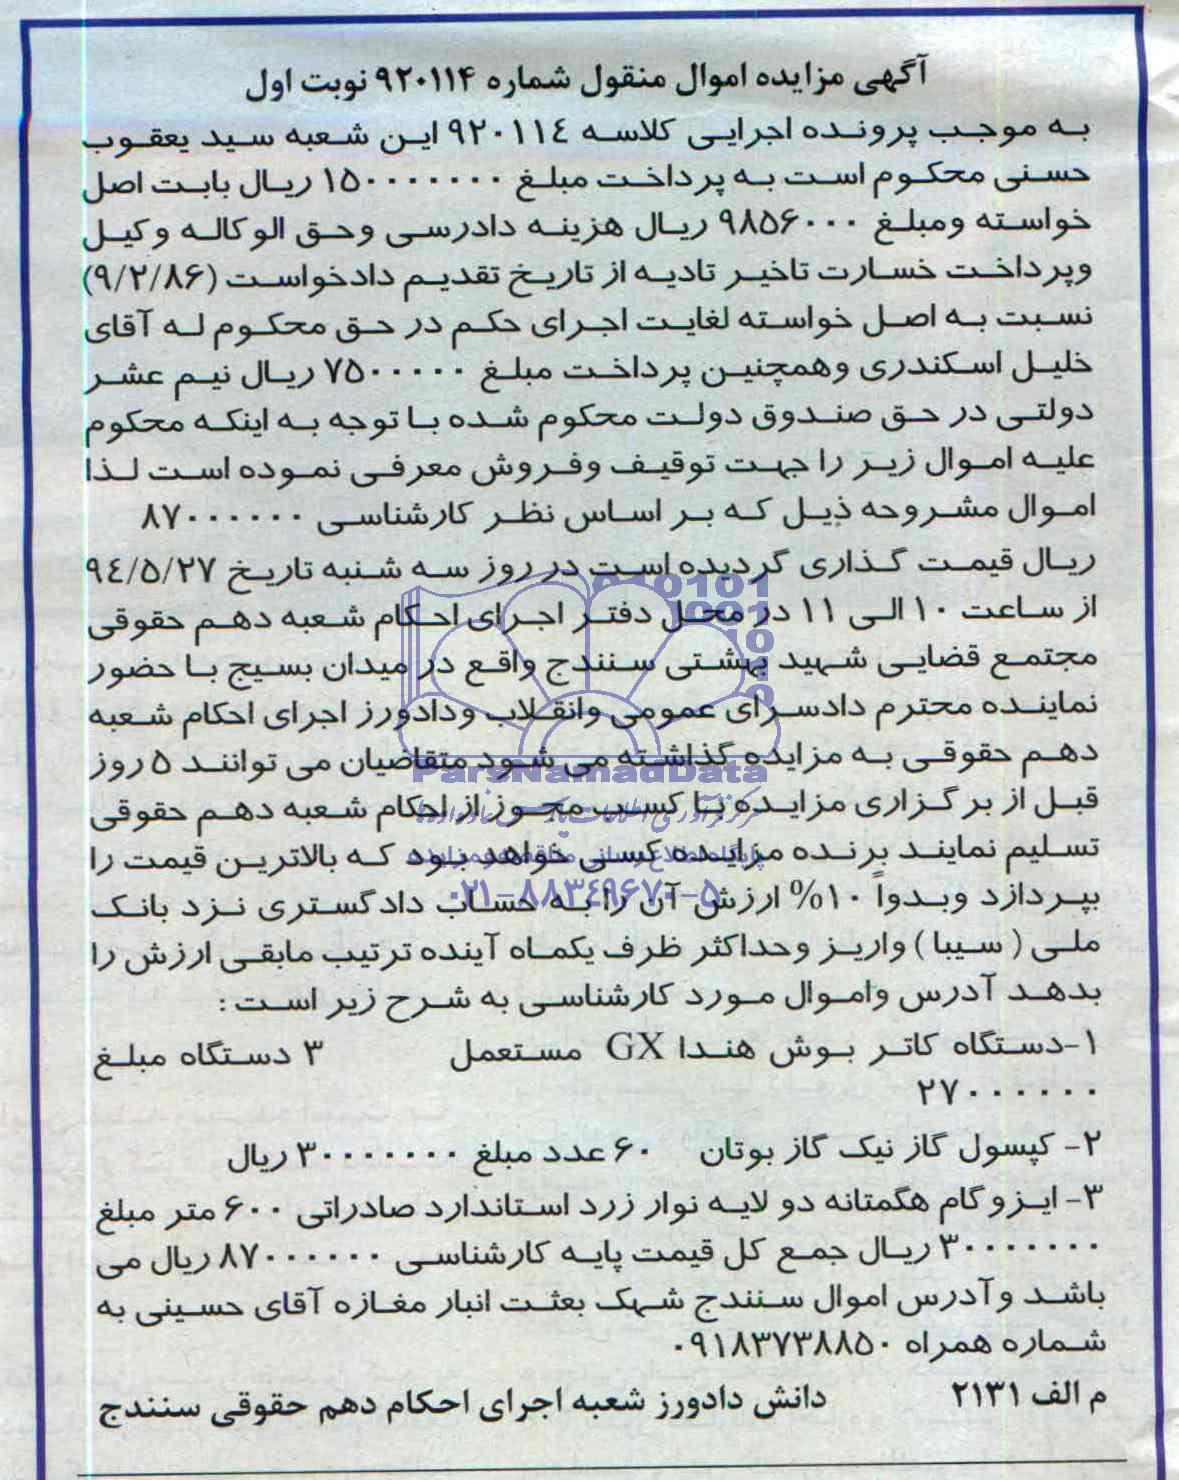 آگهی مزایده اموال منقول شماره ۹۲۰۱۱۴ نوبت اول
به موجب پرونده اجرایی کلاسه ۹۲۰۱۱٤ این شعبه سید یعقوب
حسنی محکوم است به پرداخت مبلغ ۱۵۰۰۰۰۰۰۰ ریال بابت اصل
خواسته ومبلغ ۹۸۵۶۰۰۰ ریال هزینه دادرسی وحق الوکاله وکیل
وپرداخت خسارت تاخیر تادیه از تاریخ تقدیم دادخواست (۹/۲/۸۶)
نسبت به اصل خواسته لغایت اجرای حکم در حق محکوم له آقای
خلیل اسکندری وهمچنین پرداخت مبلغ ۷۵۰۰۰۰۰ ریال نیم عشر
دولتی در حق صندوق دولت محکوم شده با توجه به اینکه محکوم
علیه اموال زیر را جهت توقیف وفروش معرفی نموده است لذا
اموال مشروحه ذیل که بر اساس نظر کارشناسی ۸۷۰۰۰۰۰۰
ریال قیمت گذاری گردیده است در روز سه شنبه تاریخ ۹٤/۵/۲۷
از ساعت ۱۰ الی ۱۱ در محل دفتر اجرای احکام شعبه دهم حقوقی
مجتمع قضایی شهید بهشتی سنندج واقع در میدان بسیج با حضور
نماینده محترم دادسرای عمومی وانقلاب ودادورز اجرای احکام شعبه
دهم حقوقی به مزایده گذاشته می شود متقاضیان می توانند ۵ روز
قبل از برگزاری مزایده با کسب مجوز از احکام شعبه دهم حقوقی
تسلیم نمایند برنده مزایده کسی خواهد بود که بالاترین قیمت را
بپردازد وبدواً ۱۰% ارزش آن را به حساب دادگستری نزد بانک
ملی (سیبا) واریز وحداکثر ظرف یکماه آینده ترتیب مابقی ارزش را
بدهد آدرس واموال مورد کارشناسی به شرح زیر است :
۱-دستگاه کاتر بوش هندا GX مستعمل ۳ دستگاه مبلغ
۲۷۰۰۰۰۰۰
۲- کپسول گاز نیک گاز بوتان ۶۰ عدد مبلغ ۳۰۰۰۰۰۰۰ ریال
۳- ایزوگام هگمتانه دو لایه نوار زرد استاندارد صادراتی ۶۰۰ متر مبلغ
۳۰۰۰۰۰۰۰ ریال جمع کل قیمت پایه کارشناسی ۸۷۰۰۰۰۰۰ ریال می
باشد وآدرس اموال سنندج شهک بعثت انبار مغازه آقای حسینی به
شماره همراه ۰۹۱۸۳۷۳۸۸۵۰
م الف ۲۱۳۱ دانش دادورز شعبه اجرای احکام دهم حقوقی سنندج
ParsNamadData
۰۲۱-۸۸۳٤۹۶۷۰-۵